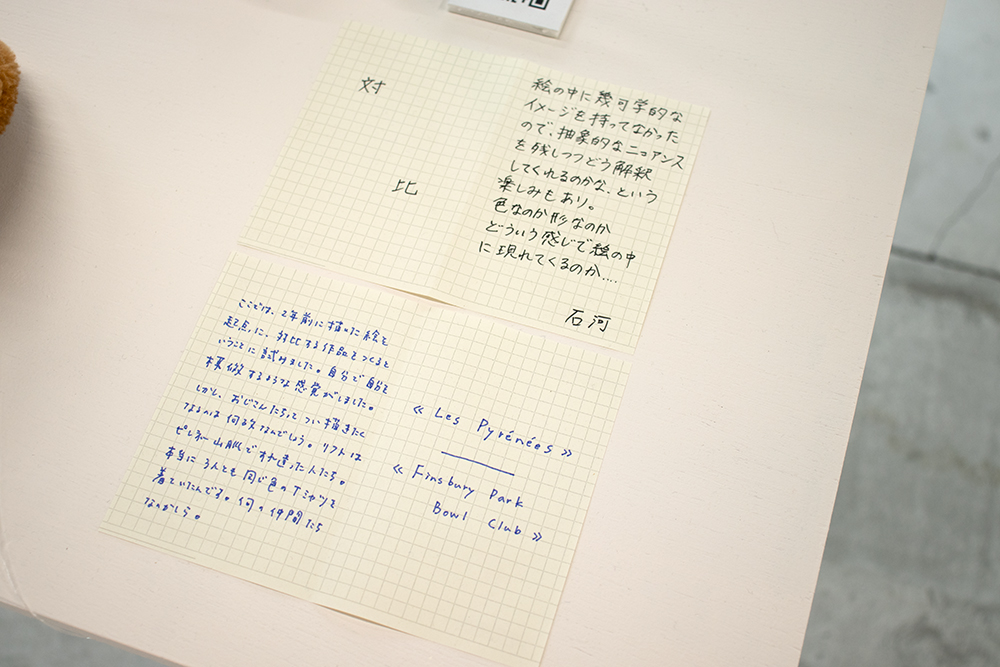 対
比
絵の中に幾可学的な
イメージを持ってなかった
ので、抽象的なニュアンス
を残しつつどう解釈
してくれるのかな、という
楽しみもあり。
色なのか形なのか
どういう感じで絵の中
に現れてくるのか....
石河
ここでは、2年前に描いた絵を
起点に、対比する作品をつくると
いうことに試みました。自分で自分を
模倣するような感覚がしました。
しかし、おじさんたちってつい描きたく
なるのは何故なんでしょう。リフトは
ピレネー山脈ですれ違った人たち。
本当に3人とも同じ色のTシャツを
着ていたんです。何の仲間たち
なのかしら。
《 Les Pyrénées 》
《 Finsbury Park
Bowl Club 》